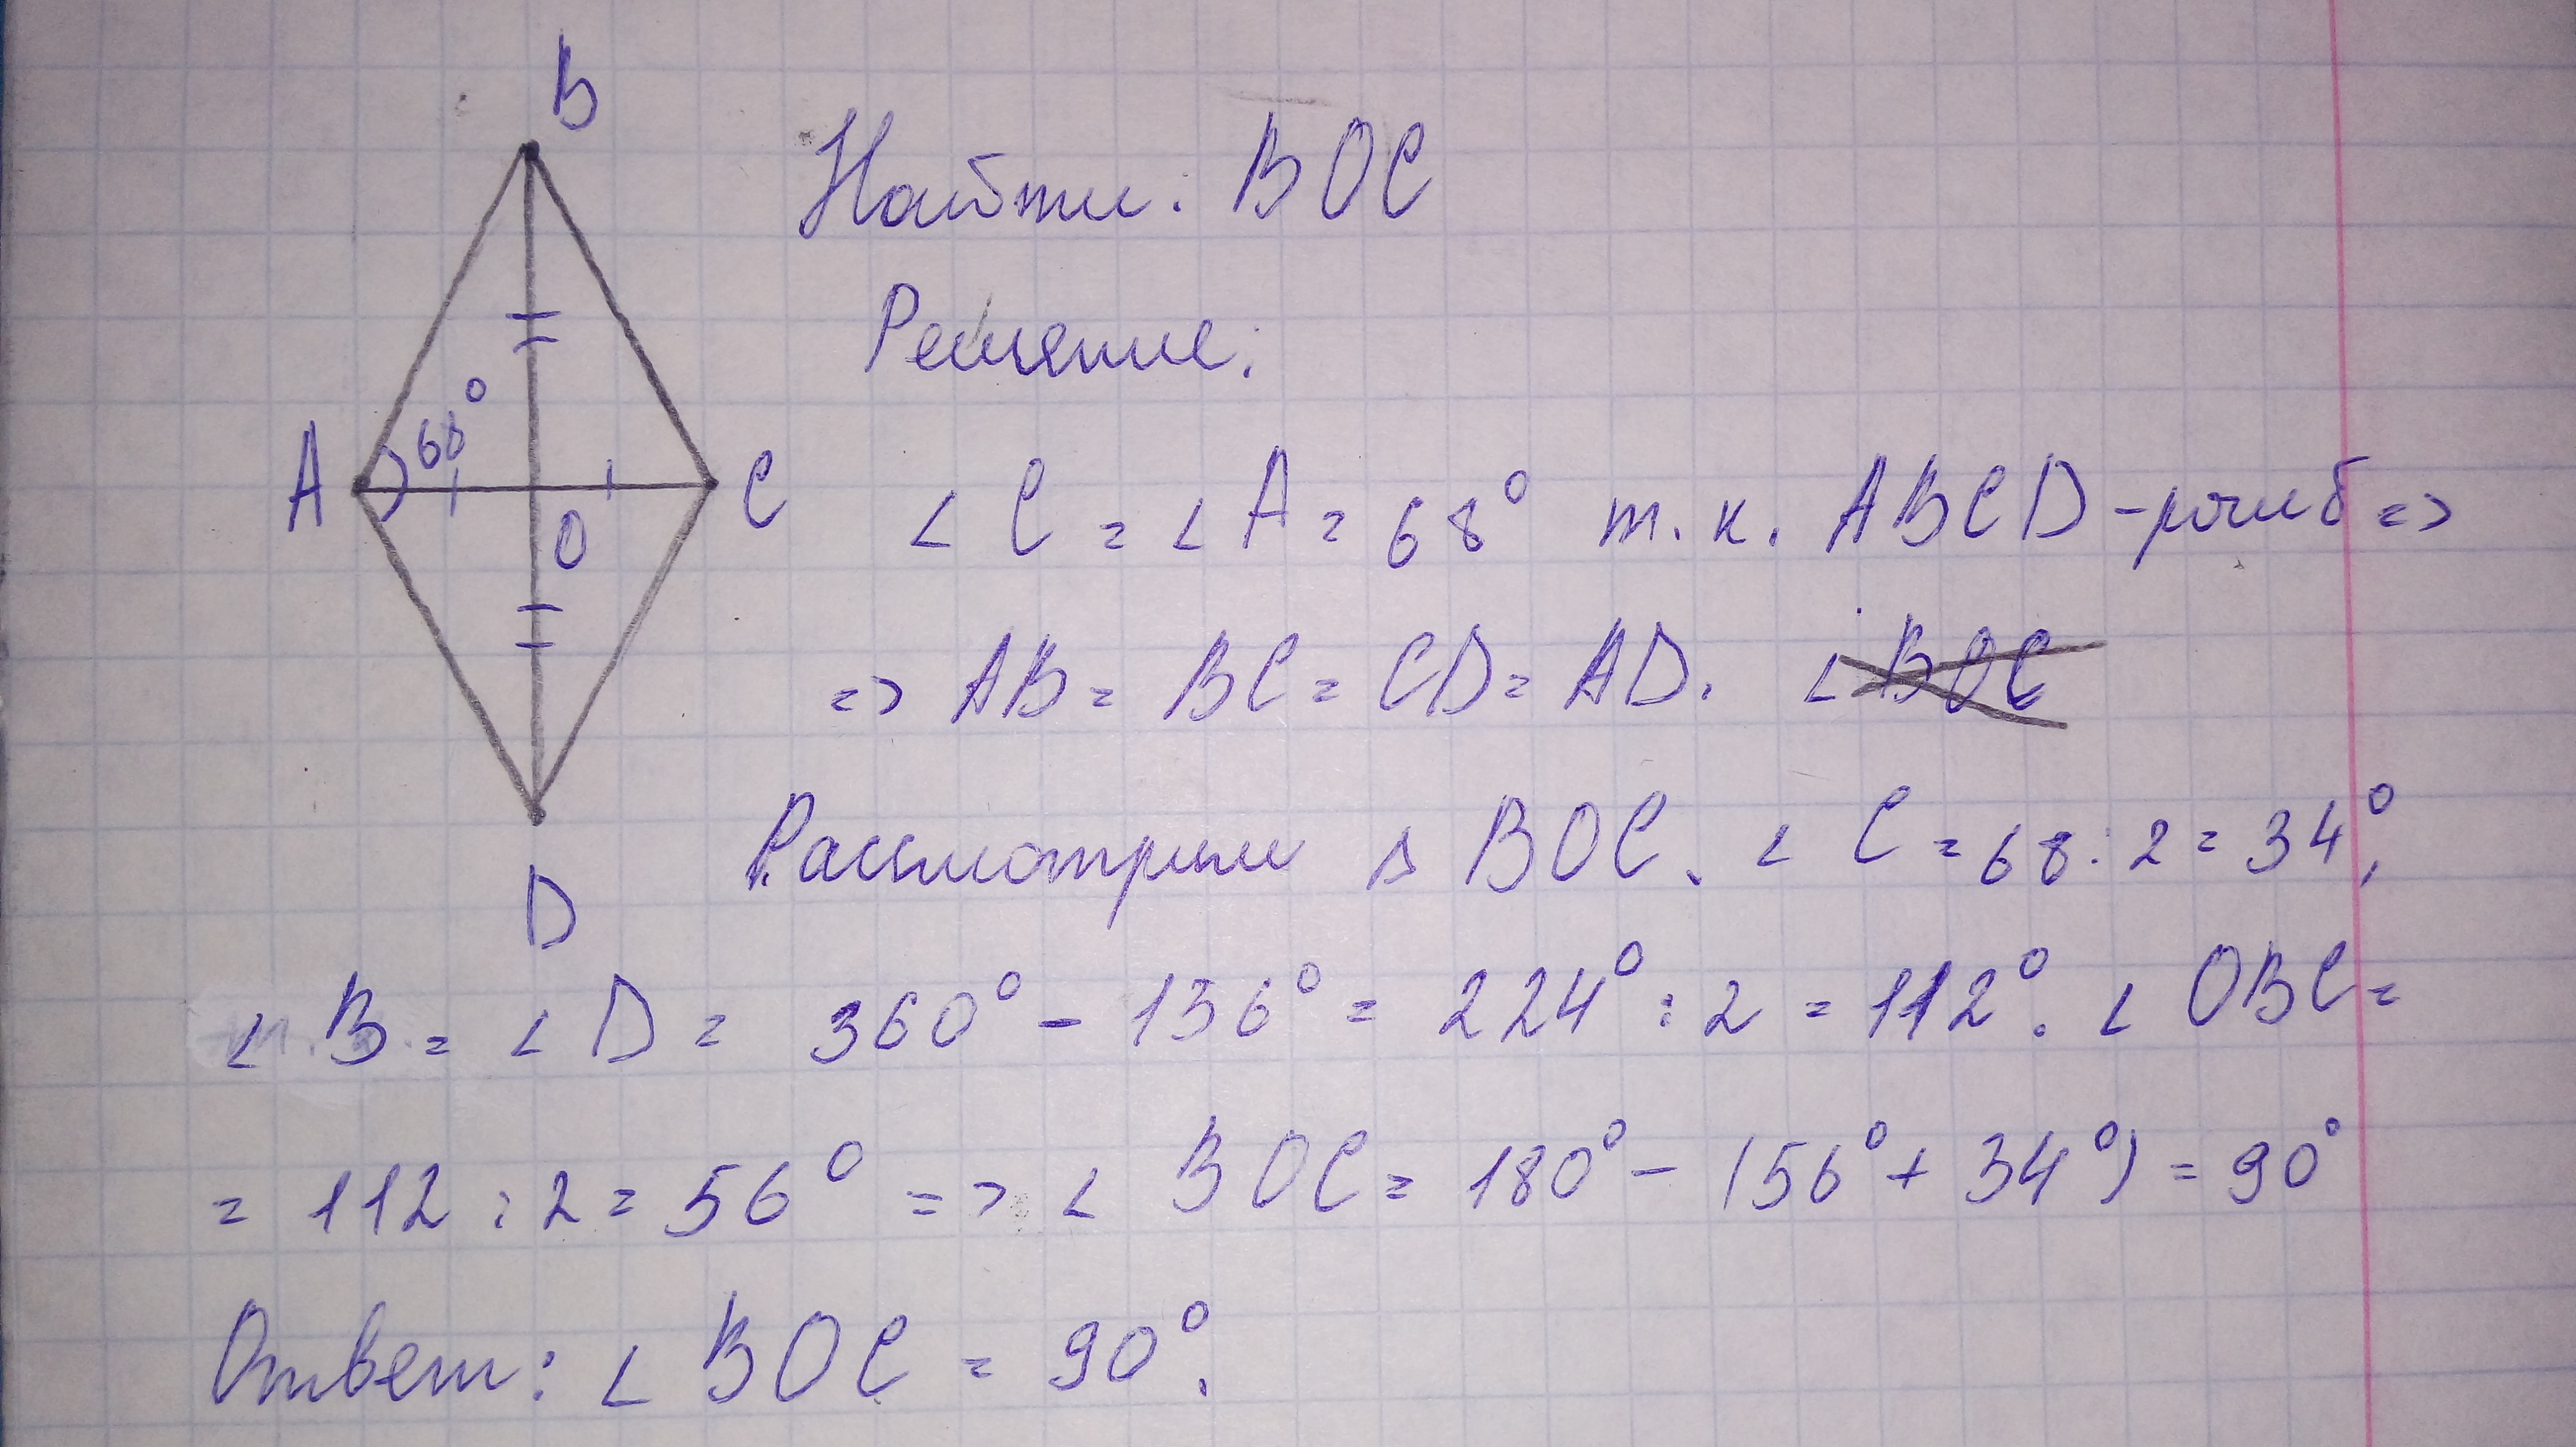 B
Найти: BOC
Решение:
68°
A
C
O
∠ C = ∠ A = 68° т.к. ABCD - ромб =>
=> AB = BC = CD = AD. ∠ BOC
Рассмотрим Δ BOC. ∠ C = 68 : 2 = 34°,
D
∠ B = ∠ D = 360° - 136° = 224° : 2 = 112°. ∠ OBC =
= 112 : 2 = 56° => ∠ BOC = 180° - (56° + 34°) = 90°
Ответ: ∠ BOC = 90°.